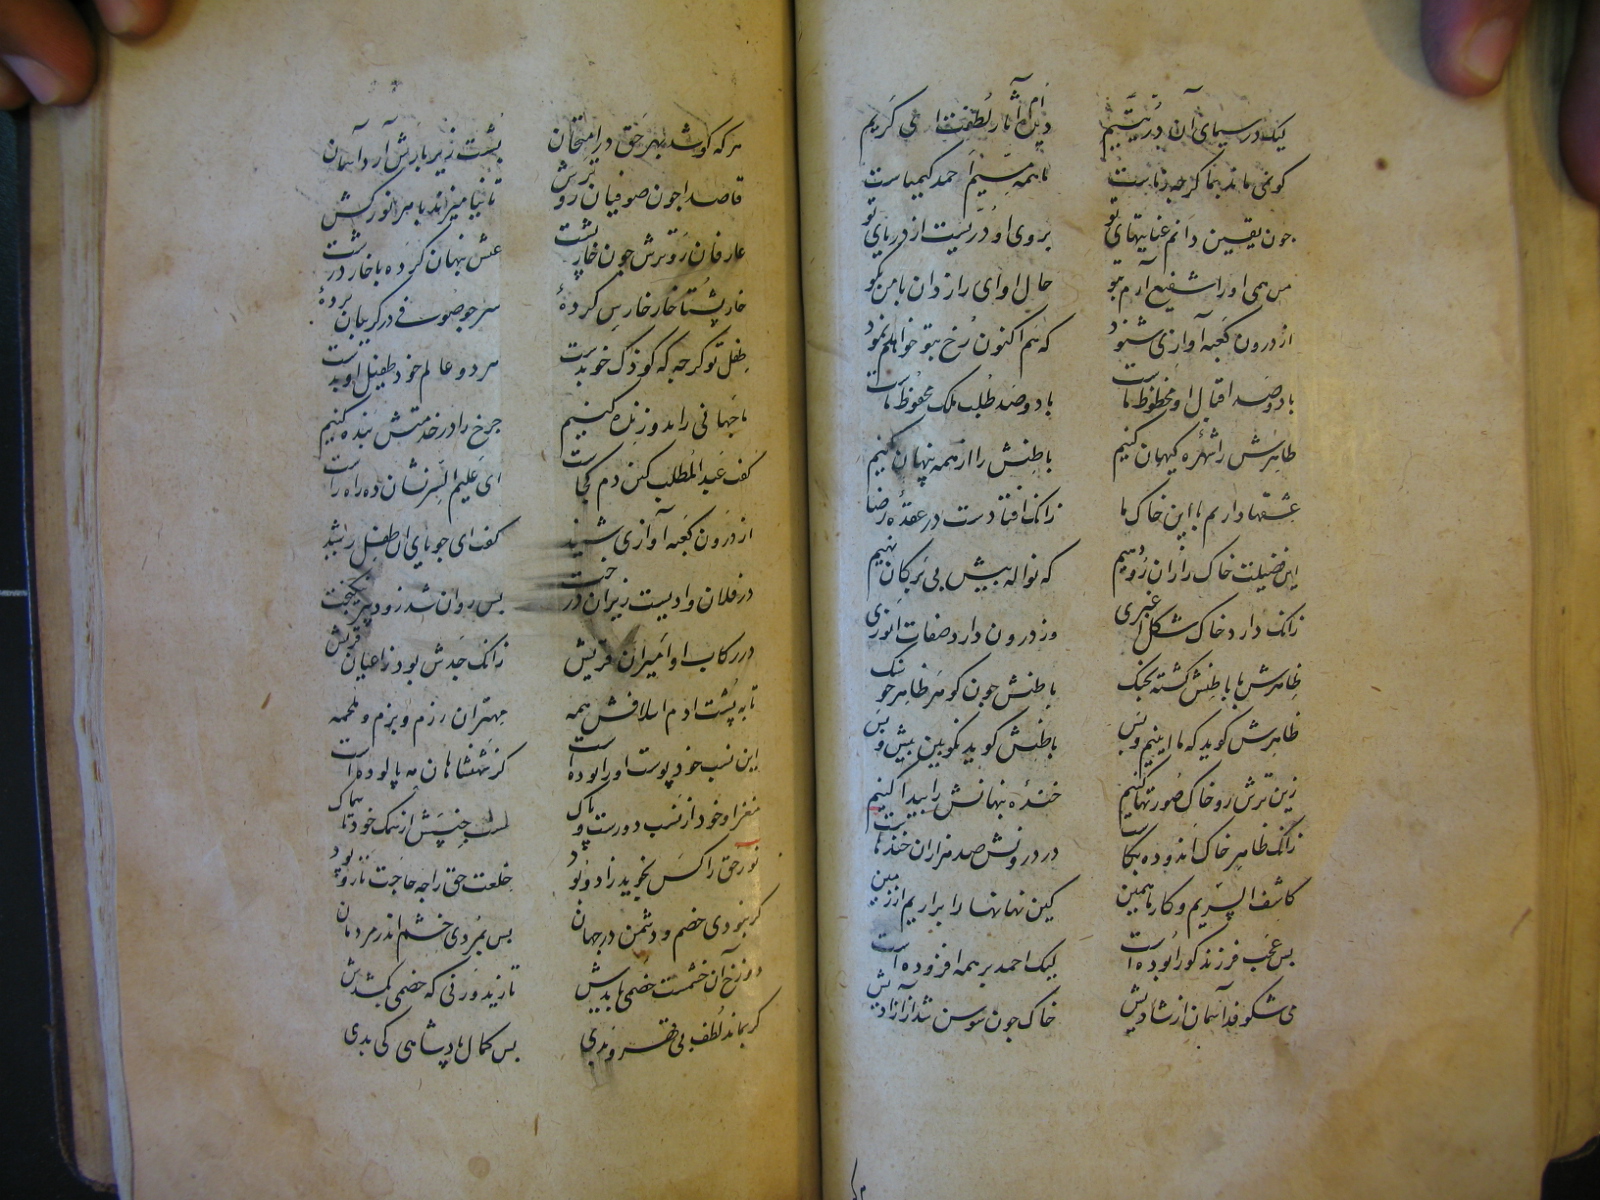 لیک در سیمای آن در یتیم دیده‌ام آثار لطفت ای کریم
کو نمی ماند بما کرچه زماست ما همه مسیم احمد کیمیاست
چون یقین دانم عنایتهای تو بر وی او درّیست از دریای تو
من هم او را شفیع آرم بتو حال او ای رازدان با من بکو
از درون کعبه آوازی شنود که هم اکنون رخ بتو خواهم نمود
با دو صد اقبال او محظوظ ماست با دو صد طلب ملک محفوظ ماست
ظاهرش را شهره کیهان کنیم باطنش را از همه پنهان کنیم
عشقها داریم با این خاک ما زانک افتادست در عقده رضا
این فضیلت خاک را زان رو دهیم که نواله پیش بی برکان نهیم
زانک دارد خاک شکل اغبری وز درون دارد صفات انوری
ظاهرش با باطنش کشته بجنک باطنش چون کوهر ظاهر چو سنک
ظاهرش کوید که ما اینیم و بس باطنش کوید نکو بین پیش و پس
زین ترش رو خاک صورتها کنیم خنده پنهانش را پیدا کنیم
زانک ظاهر خاک اندوه و بکاست در درونش صد هزاران خندهاست
کاشف السریم و کار ما همین کین نهانها را براریم از زمین
بس عجب فرزند کو را بوده است لیک احمد بر همه افزوده است
می شکوفد آسمان از شادیش خاک چون سوسن شد از آزادیش
هر که کوشد بهر حق در امتحان پشت زیر بارش آرد آسمان
قاصدا چون صوفیان رو ترش تا نیامیزند با هر نورکش
عارفان رو ترش چون خارپشت عیش پنهان کرده با خار درشت
خارپشتا خار حارس کرده سر چو صوفی در کریبان برده
طفل تو کرچه که کودک خو بدست هر دو عالم خود طفیل او بدست
ما جهانی را بدو زنده کنیم چرخ را در خدمتش بنده کنیم
کفت عبدالمطلب کین دم کجاست ای علیم السر نشان ده راه راست
از درون کعبه آوازی شنید کفت ای جویای آن طفل رشید
در فلان وادیست زیر آن درخت پس روان شد زود پیر نیکبخت
در رکاب او امیران قریش زانک جدش بود ز اعیان قریش
تا به پشت ادم اسلافش همه مهتران رزم و بزم و ملحمه
این نسب خود پوست او را بوده است کز شهنشاهان مه پالوده است
مغز او خود از نسب دورست و پاک نیست جنسش از سمک خود تا سماک
نور حق را کس نجوید زاد و بود خلعت حق را چه حاجت تار و پود
کر نبودی خصم و دشمن در جهان پس بمردی خشم اندر مردمان
دوزخ آن خشمست خصمی بایدش تا زید ورنی که خصمی بکشدش
کر بماند لطف بی قهر و بدی پس کمال پادشاهی کی بدی